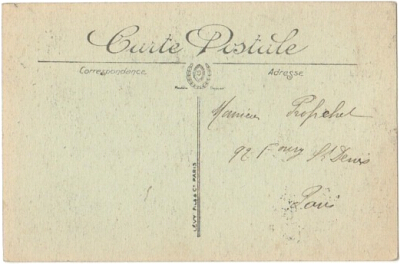 Carte Postale
Correspondance
Adresse
Monsieur
92 Fourg St Denis
Paris
LEVY FILS & Cie PARIS